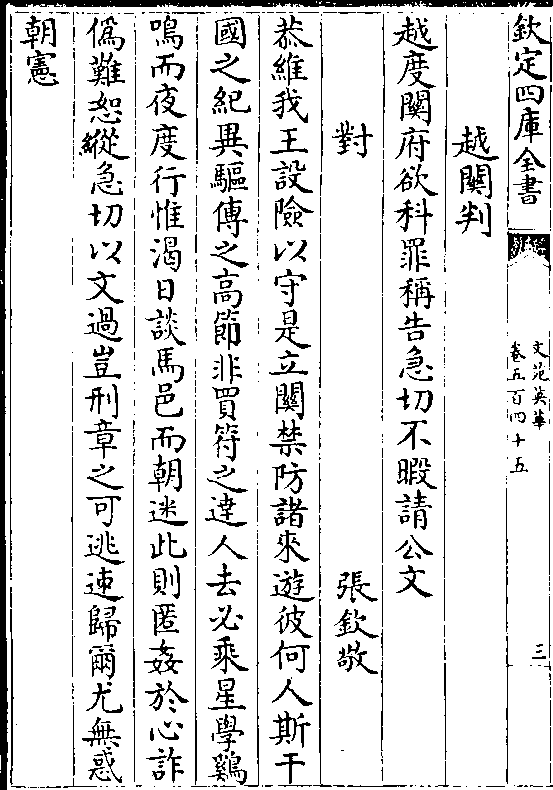 欽定四庫全書
文苑英華
卷五百四十五
三
越關判
越度關府欲科罪稱告急切不暇請公文
對
張欽敬
恭維我王設險以守是立關禁防諸來遊彼何人斯干
國之紀異驅傳之高節非買符之達人去必乘星學鷄
鳴而夜度行惟渴日談馬邑而朝迷此則匿姦於心詐
偽難恕縱急切以文過豈刑章之可逃速歸爾尤無惑
朝憲